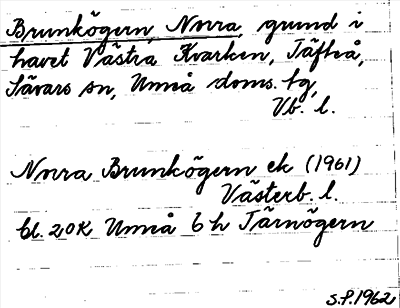 Brunkögern, Norra, grund i
havet Västra Kvarken, Täfteå,
Sävars sn, Umeå doms. tg,
Vb. l.
Norra Brunkögern ek (1961)
Västerb. l.
bl. 20K Umeå 6h Tärnögern
S.P. 1962